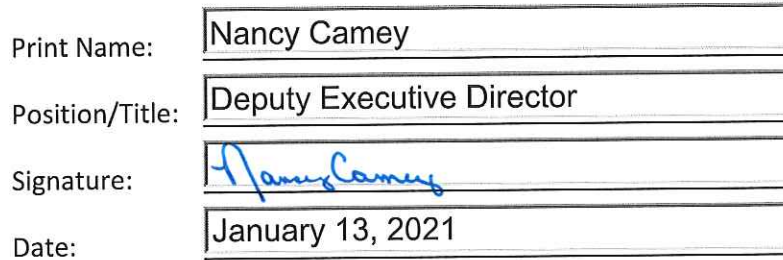 Print Name: Nancy Camey
Position/Title: Deputy Executive Director
Signature: Nancy Camey
Date: January 13, 2021